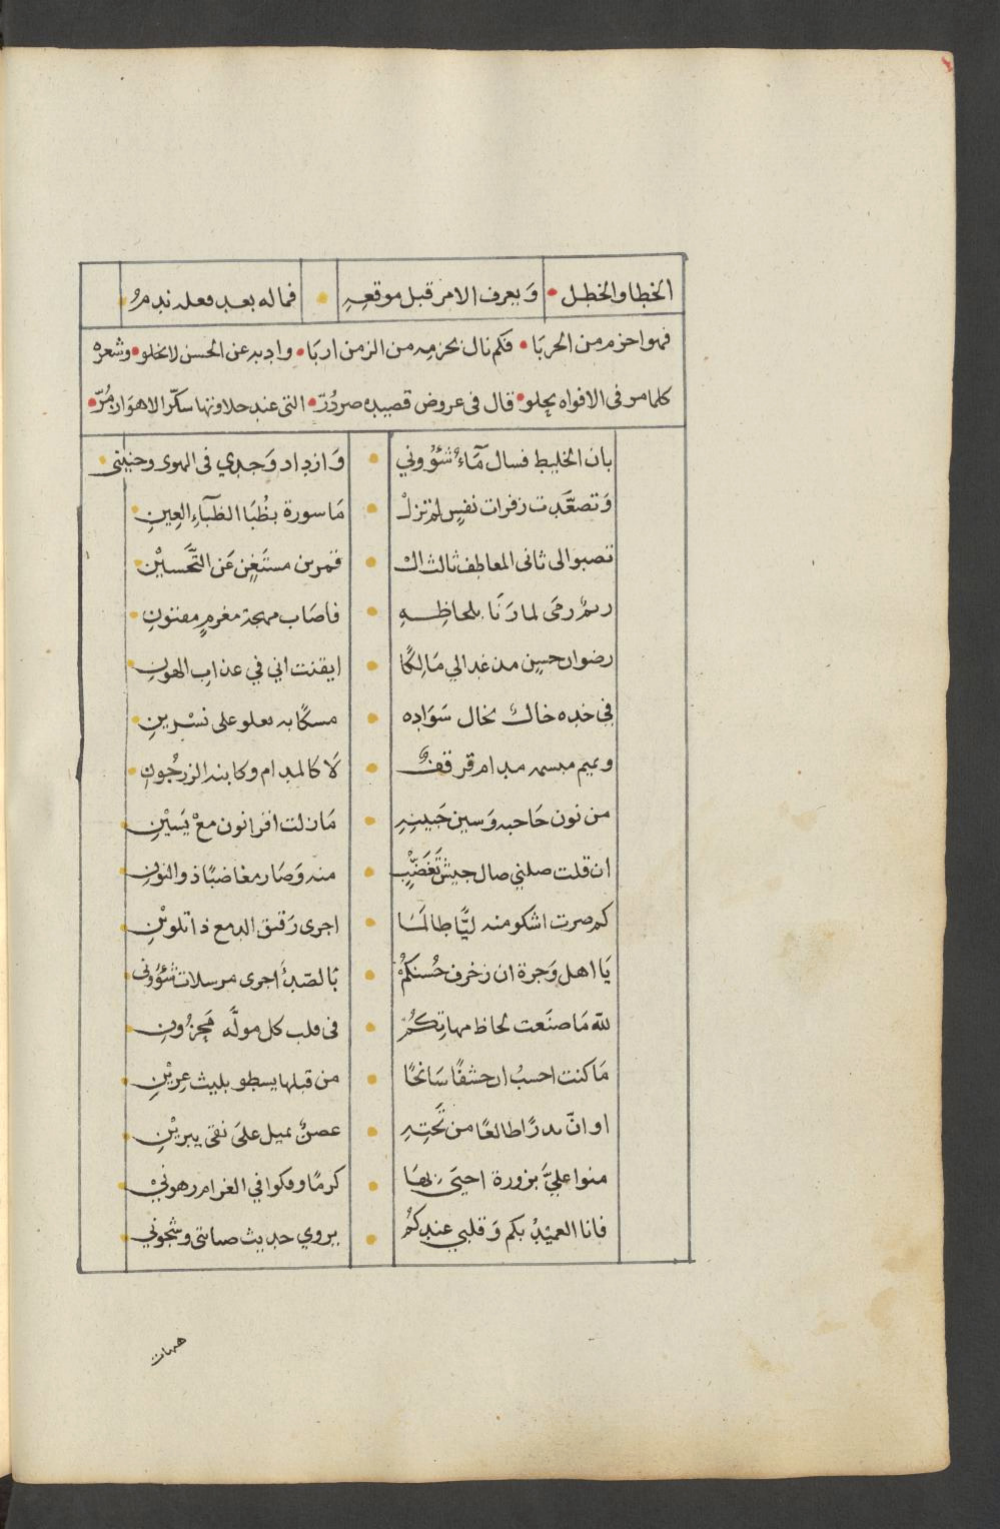 الخطا والخطل • وَيعرف الامر قبل موقعِهِ • فما له بعد فعله ندمُ
فهو احزم من الحربَا • فكم نال بحزمه من الزمن اربَا • وادبه عن الحسن لا يخلو • وشعره
كلما مر فى الافواه يحلو • قال فى عروض قصيدة صردُرّ • التى عند حلاوتها سكّر الاهوَاز مُرّ •
بان الخليط فسال مَآءُ شئوُوني • وَازداد وَجدي فى الهوى وحنينى
وَتصعَّدت زفرات نفسٍ لم تزلْ • مَاسورة بظُبَا الظبَآءِ العِينِ
تصبوا الى ثانى المعاطف ثالث الـ • قمرين مستَغنٍ عَن التَّحسيْن
ريمٌ رمَى لما رَنَا بلحاظِهِ • فاصَاب مهجة مغرمٍ مفتونِ
رضوان حسنٍ مذ غدا لي مَالِكًا • ايقنت اني في عذابِ الهونِ
في خده خالٌ يخال سَوَاده • مسكًا به يعلو على نسْرينِ
وبميم مبسمه مدام قرقفٌ • لَا كالمدام وكابنه الزرجُونِ
من نون حَاجبه وَسين جَبينِهِ • مَا زلت اقرا نون معْ يَسيْنِ
ان قلت صلني صال جيش تَغَضّبٍ • منه وَصَار مغاضبًا ذو النونِ
كم صرت اشكو منه ليًّا طالمَا • اجرى رَقيق الدمع ذا تلويْنِ
يَا اهل وَجرة ان زخرف حُسنكمُ • بالصَدِّ اجرى مرسلات شئوُونى
لله مَا صنَعت لحاظ مهاتِكمُ • فى قلب كل مولَّه مَحزُونِ
مَا كنت احسبُ ان خشفًا سَانحًا • من قبلها يسطو بليث عِريْنِ
او انّ بدرًا طالعًا من تَحتِهِ • غصنٌ يميل علىَ نقى يبريْنِ
منوا عليَّ بزورة احيَى بهَا • كرمًا وفكوا في الغرام رهونيْ
فانا العميْدُ بكم وَقلبي عندكمُ • يروي حديث صبابتى وشجوني
هيهات